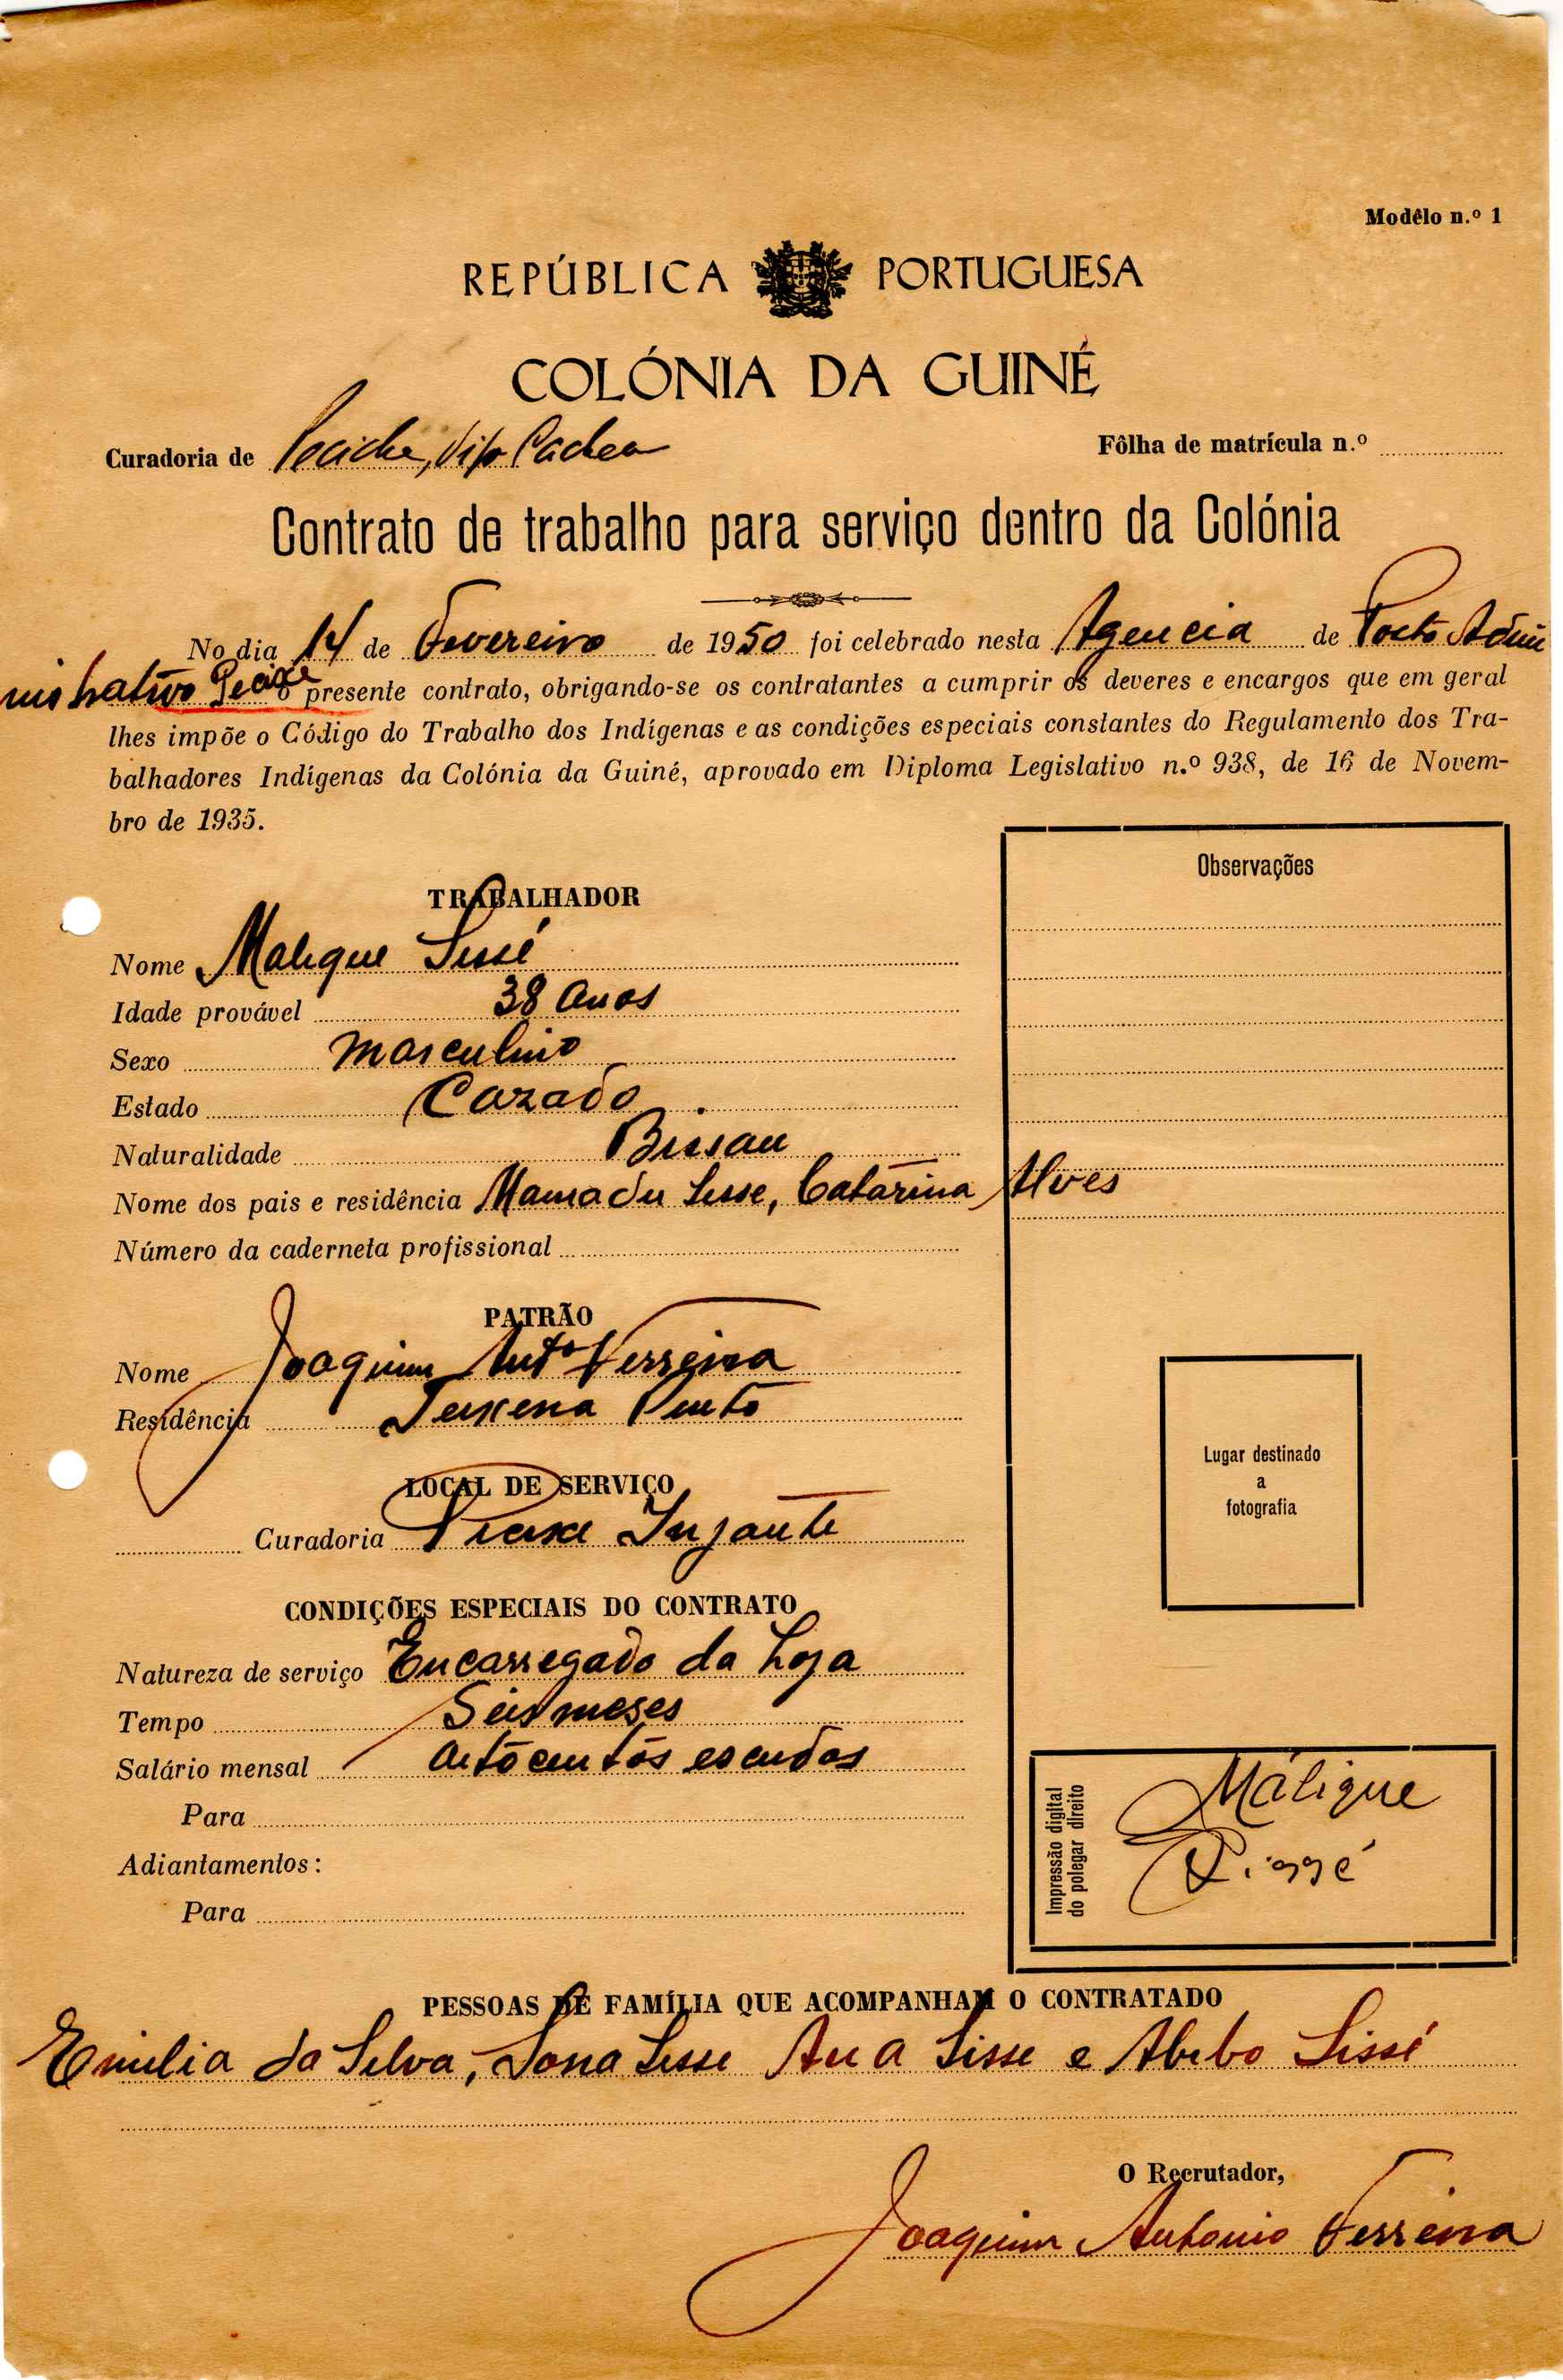 Modêlo n.º 1
REPÚBLICA PORTUGUESA
COLÓNIA DA GUINÉ
Curadoria de
Fôlha de matrícula n.º
Contrato de trabalho para serviço dentro da Colónia
No dia 14 de Fevereiro de 1950 foi celebrado nesta Agencia de Posto Admi
nistrativo Pecixe o presente contrato, obrigando-se os contratantes a cumprir os deveres e encargos que em geral
lhes impõe o Código do Trabalho dos Indígenas e as condições especiais constantes do Regulamento dos Tra-
balhadores Indígenas da Colónia da Guiné, aprovado em Diploma Legislativo n.º 938, de 16 de Novem-
bro de 1935.
Observações
TRABALHADOR
Nome Malique Sissé
Idade provável 38 anos
Sexo masculino
Estado Cazado
Naturalidade Bissau
Nome dos pais e residência Mamadu Sisse, Catarina Alves
Número da caderneta profissional
PATRÃO
Nome Joaquim Antº Ferreira
Residência Teixeira Pinto
Lugar destinado
a
fotografia
LOCAL DE SERVIÇO
Curadoria
CONDIÇÕES ESPECIAIS DO CONTRATO
Natureza de serviço Encarregado da Loja
Tempo Seis meses
Salário mensal oitocentos escudos
Para
Adiantamentos:
Para
Impressão digital
do polegar direito
Málique
Sissé
PESSOAS DE FAMÍLIA QUE ACOMPANHAM O CONTRATADO
Emilia da Silva, Sona Sisse Ana Sisse e Abibo Sissé
O Recrutador,
Joaquim Antonio Ferreira